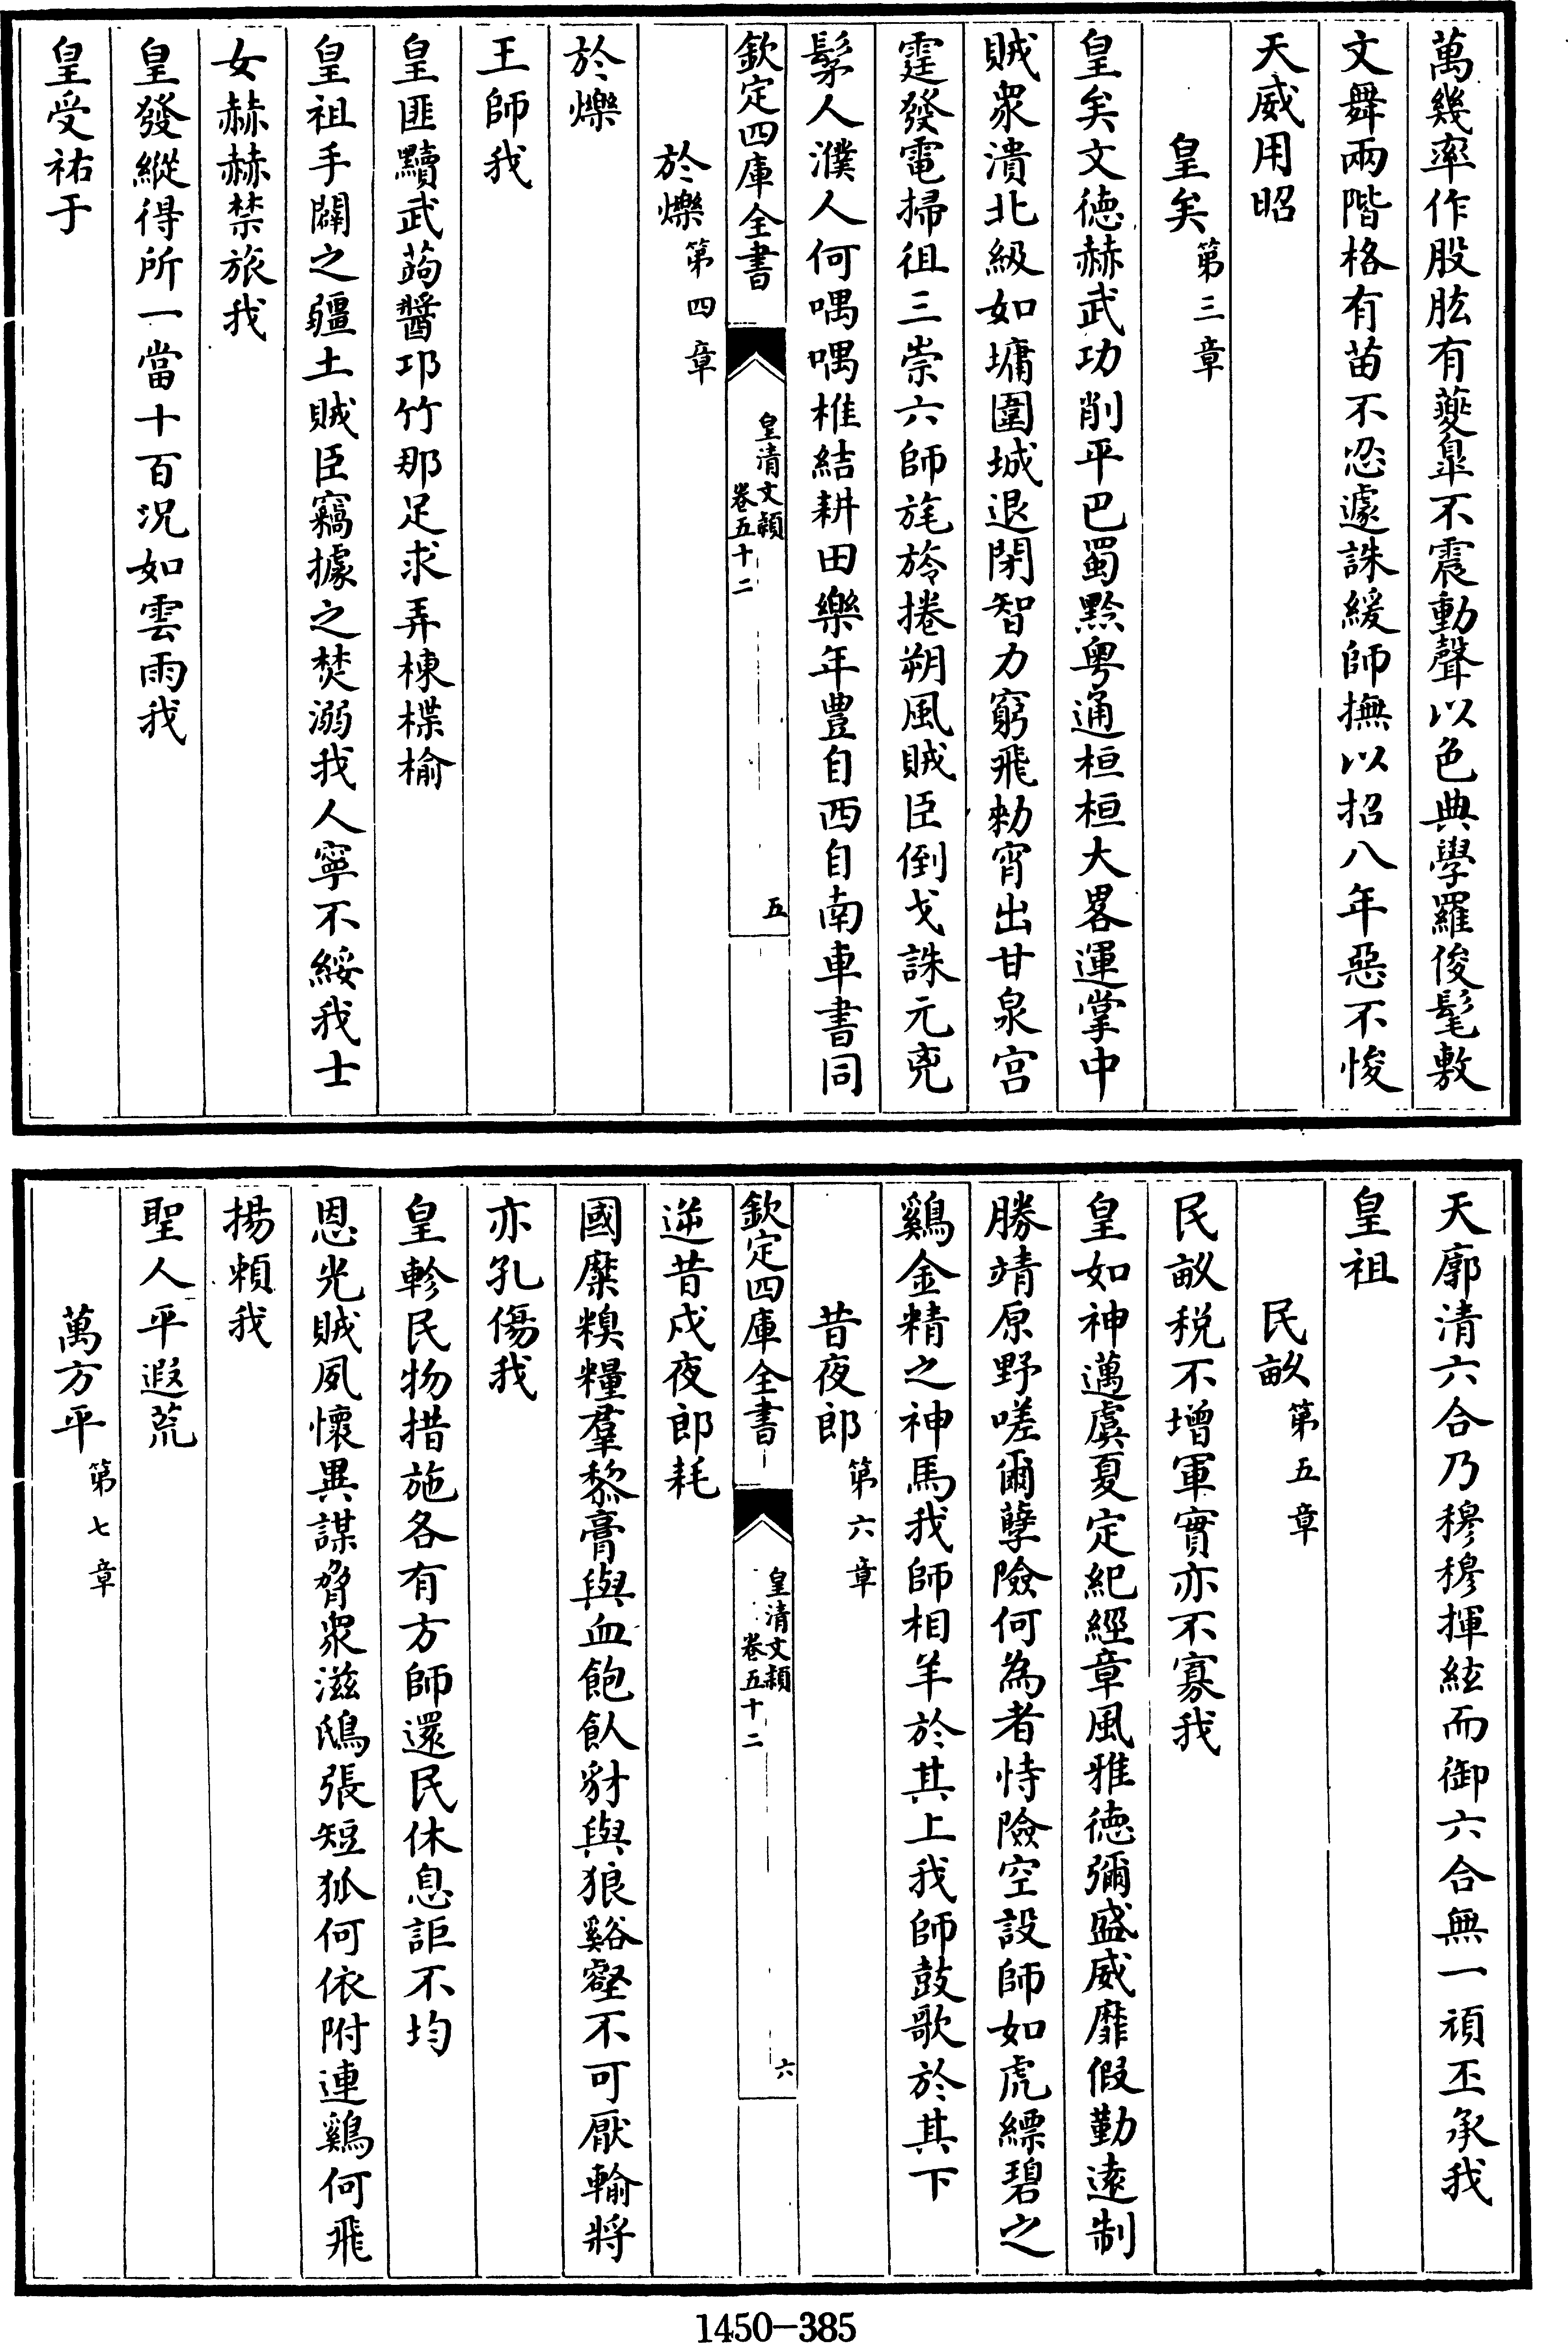 萬幾率作股肱有夔皐不震動聲以色典學羅俊髦敷
文舞兩階格有苗不忍遽誅緩師撫以招八年惡不悛
天威用昭
皇矣第三章
皇矣文德赫武功削平巴蜀黔粵通桓桓大畧運掌中
賊衆潰北級如墉圍城退閉智力窮飛勅宵出甘泉宫
霆發電掃徂三崇六師旄旍捲朔風賊臣倒戈誅元兇
髳人濮人何喁喁椎結耕田樂年豊自西自南車書同
欽定四庫全書
皇清文穎
卷五十二
五
於爍第四章
於爍
王師我
皇匪黷武蒟醬邛竹那足求弄棟楪榆
皇祖手闢之疆土賊臣竊據之焚溺我人寧不綏我士
女赫赫禁旅我
皇發縱得所一當十百况如雲雨我
皇受祐于
天廓清六合乃穆穆揮絃而御六合無一頑丕承我
皇祖
民畝第五章
民畝税不增軍實亦不寡我
皇如神邁虞夏定紀經章風雅德彌盛威靡假勤逺制
勝靖原野嗟爾孽險何為者恃險空設師如虎縹碧之
鷄金精之神馬我師相羊於其上我師鼓歌於其下
昔夜郎第六章
欽定四庫全書
皇清文穎
卷五十二
六
逆昔戍夜郎耗
國糜糗糧羣黎膏與血飽飲豺與狼谿壑不可厭輸將
亦孔傷我
皇軫民物措施各有方師還民休息詎不均
恩光賊夙懷異謀脅衆滋鴟張短狐何依附連鷄何飛
揚頼我
聖人平遐荒
萬方平第七章
1450-385